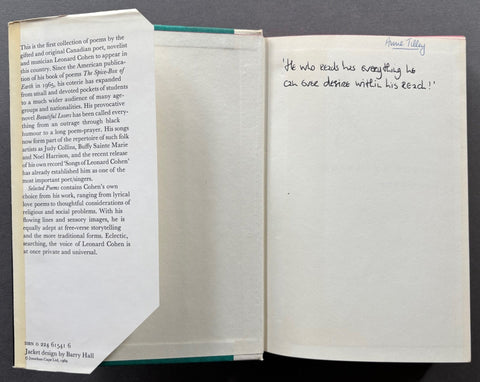 This is the first collection of poems by the
gifted and original Canadian poet, novelist
and musician Leonard Cohen to appear in
this country. Since the American publica-
tion of his book of poems The Spice-Box of
Earth in 1965, his coterie has expanded
from small and devoted pockets of students
to a much wider audience of many age-
groups and nationalities. His provocative
novel Beautiful Losers has been called every-
thing from an outrage through black
humour to a long poem-prayer. His songs
now form part of the repertoire of such folk
artists as Judy Collins, Buffy Sainte Marie
and Noel Harrison, and the recent release
of his own record 'Songs of Leonard Cohen'
has already established him as one of the
most important poet/singers.
Selected Poems contains Cohen's own
choice from his work, ranging from lyrical
love poems to thoughtful considerations of
religious and social problems. With his
flowing lines and sensory images, he is
equally adept at free-verse storytelling
and the more traditional forms. Eclectic,
searching, the voice of Leonard Cohen is
at once private and universal.
ISBN 0 224 61541 6
Jacket design by Barry Hall
© Jonathan Cape Ltd, 1969
Anne Tilley
'He who reads has everything he
can ever desire within his reach!'